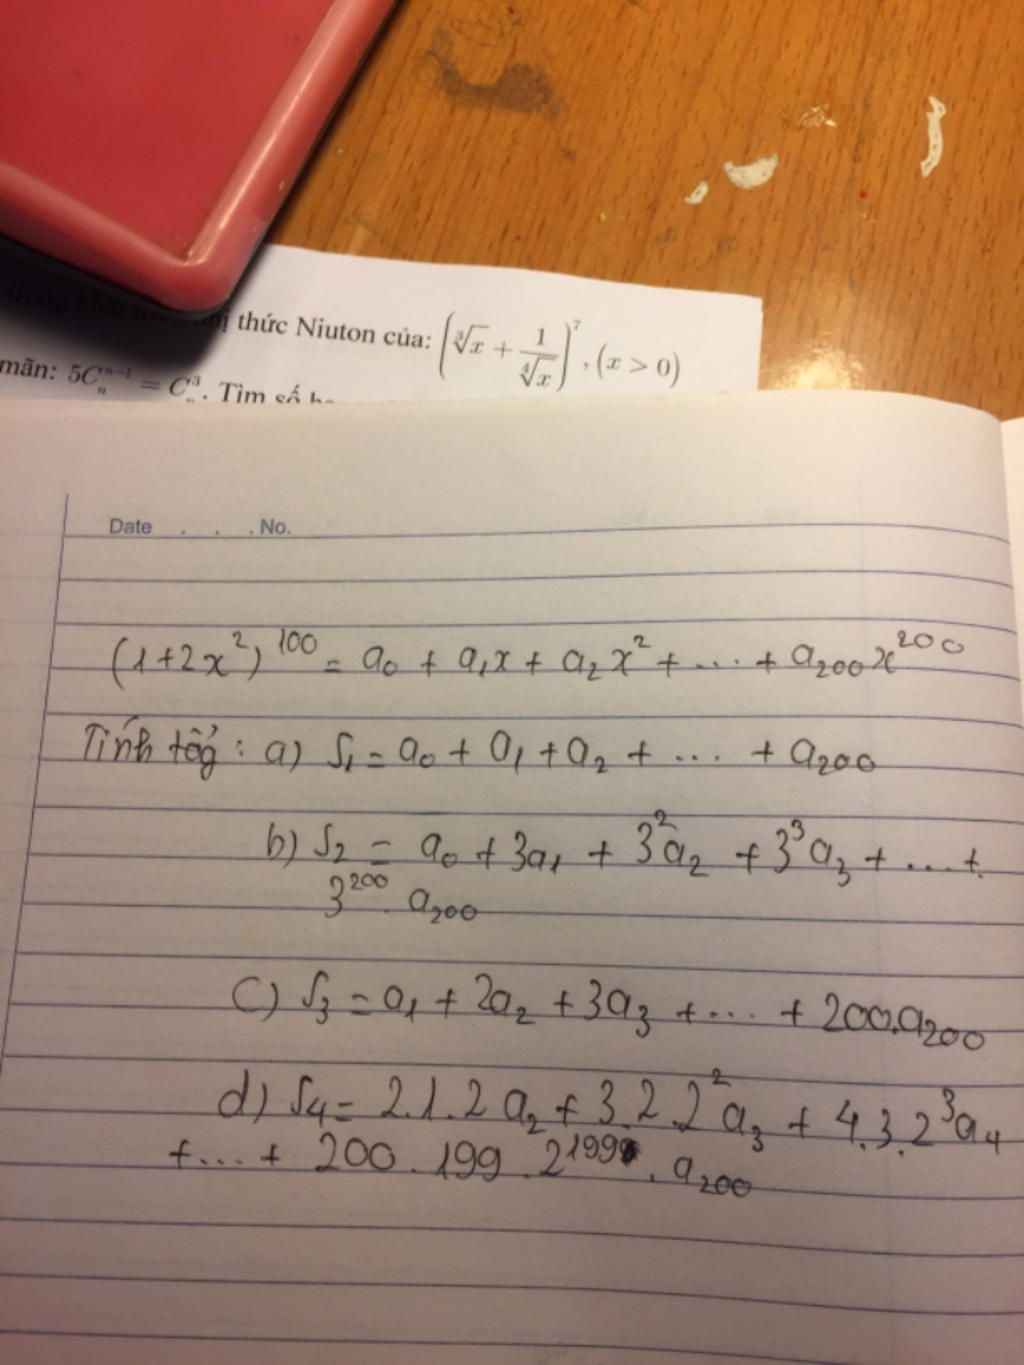 trong khai nhị thức Niuton của: (∛x + 1/∜x)⁷, (x > 0)
mãn: 5Cₙⁿ⁻¹ = Cₙ³. Tìm số
Date . . . No.
(1+2x²)¹⁰⁰ = a₀ + a₁x + a₂x² + ... + a₂₀₀x²⁰⁰
Tính tổg : a) S₁ = a₀ + a₁ + a₂ + ... + a₂₀₀
b) S₂ = a₀ + 3a₁ + 3²a₂ + 3³a₃ + ... +
3²⁰⁰. a₂₀₀
c) S₃ = a₁ + 2a₂ + 3a₃ + ... + 200.a₂₀₀
d) S₄ = 2.1.2a₂ + 3.2.2²a₃ + 4.3.2³a₄
+ ... + 200.199.2¹⁹⁹. a₂₀₀